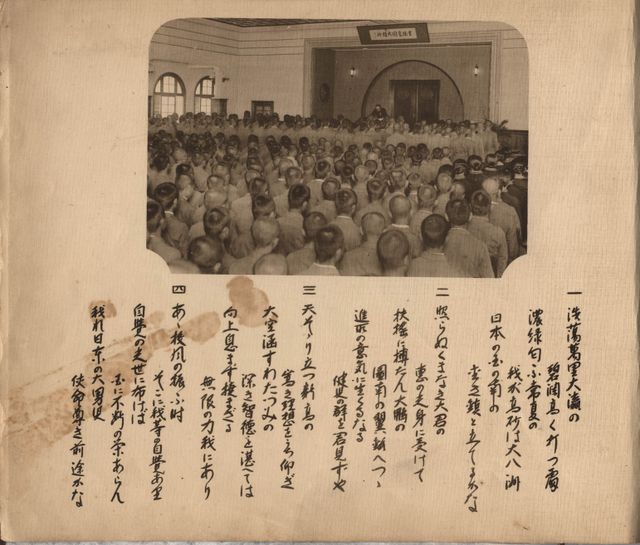 一 洪蕩萬里大瀛の
碧瀾高く打つ處
濃緑匂ふ常夏の
我が高砂は大八洲
日本の国の南の
重き鎮と立てるかな
二 照らぬくまなき大君の
恵の光身に受けて
扶揺に搏たん大鵬の
圖南の翼整へつゝ
進取の意気に生くるなる
健児の群を君見ずや
三 天そゝり立つ新高の
高き理想をうち仰ぎ
大空涵すわたつみの
深き智徳を湛へては
向上息まず撓まざる
無限の力我にあり
四 あゝ校風の振ふ時
そこに我等の自覺あり
自覺の光世に布けば
国に不断の栄あらん
我れ日東の大男児
使命尊き前途かな